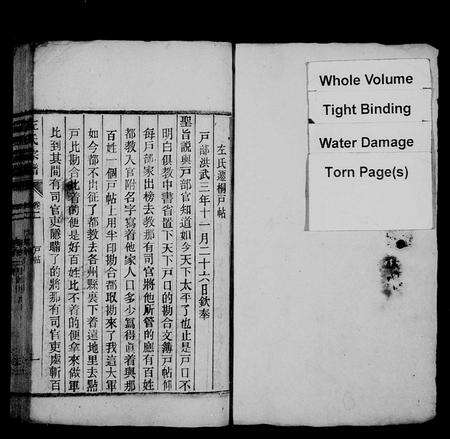 左氏遷桐戶帖
戶部洪武三年十一月二十六日欽奉
聖旨說與戶部官知道如今天下太平了也止是戶口不
明白俱教中書省置下天下戶口的勘合文簿戶帖你
每戶部家出榜去教那有司官將他所管的應有百姓
都教入官附名字寫着他家人口多少寫得直着與那
百姓一個戶帖上用半印勘合都取勘來了我這大軍
如今都不出征了都教去各州縣裏下着遶地里去點
戶比勘合比着的便是好百姓比不着的便拿來做軍
比到其間有司官吏隱瞞了的將那有司官吏處斬百
戶帖
Whole Volume
Tight Binding
Water Damage
Torn Page(s)